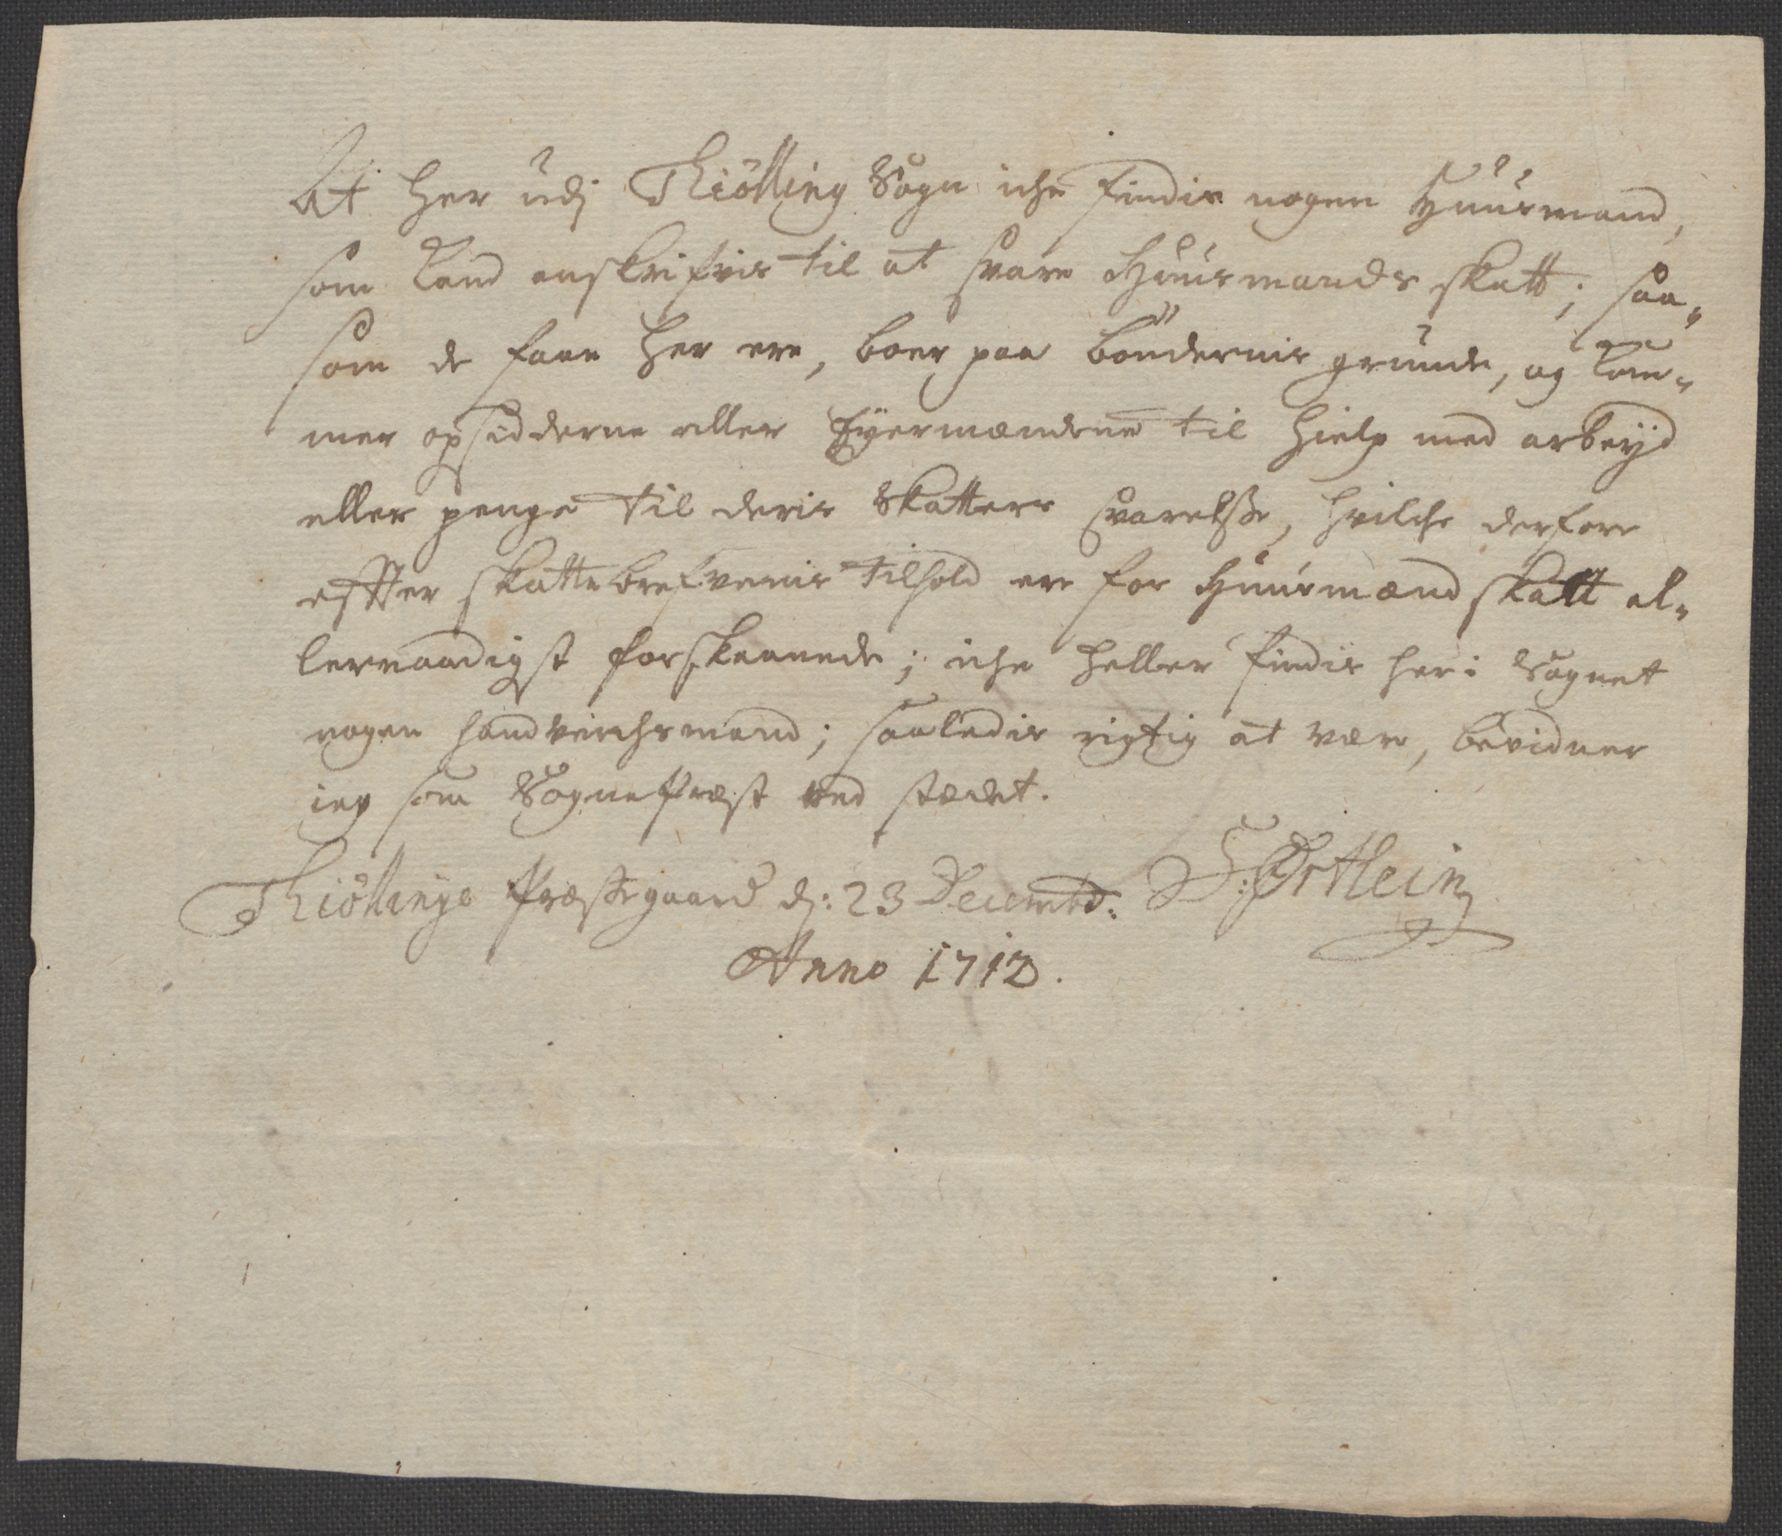 At her udj Thiölling Sogn iche findis nogen Huusmand,
som kand anskrifvis til at svare Huusmands skatt; saa-
som de faae her ere, boer paa böndernis grunde, og kom-
mer opsidderne eller Eyermændene til hielp med arbeyd
eller penge til deris Skatters svarelsse, hvilche derfore
effter skattebrefvenis tilhold ere for Huusmænd skatt al-
lernaadigst forskaanede; iche heller findis her i Sognet
nogen handverchsmand; saaledis rigtig at være, bevidner
ieg som Sognepræst ved stædet.
Thiöllinge Præstegaard dj: 23 Decembr: S: Ortlein
Anno 1712.